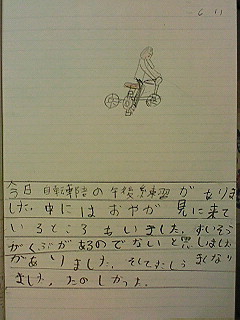 6 11
今日 自転車の午後練習がありま
した。中にはおやが見に来て
いるところもいました。すいそう
がくぶがあるのでないと思しました
がありました。そしてすこしうまくなり
ました。たのしかった。